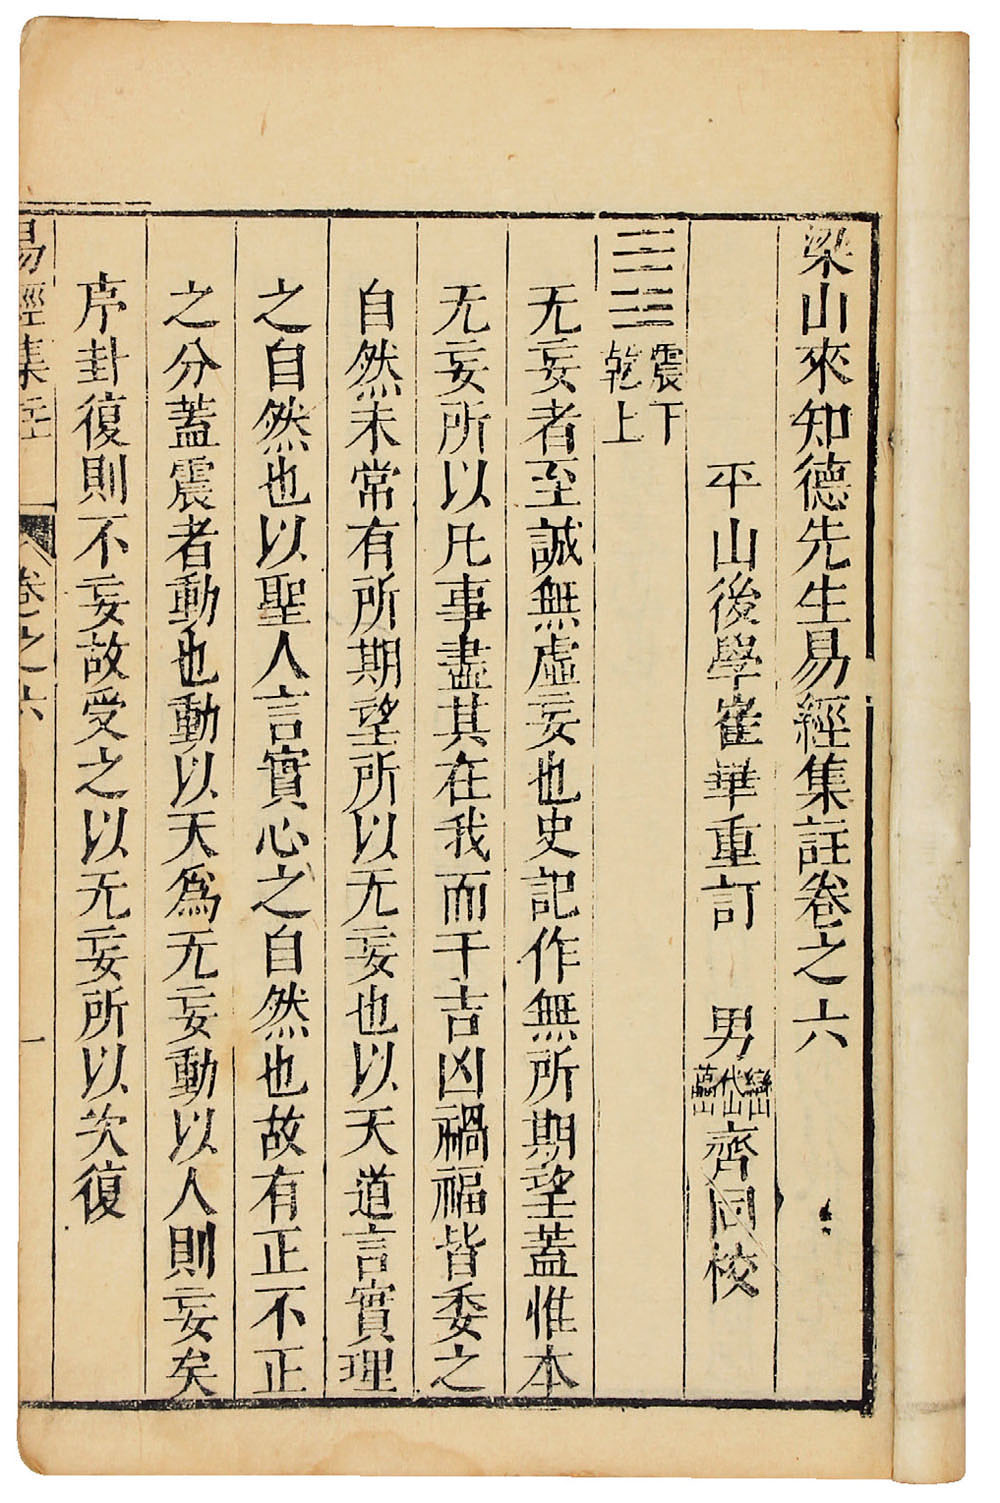 梁山來知德先生易經集註卷之六
平山後學崔華重訂 男 巒山 代山 萵山 齊同校
震下
乾上
无妄者至誠無虛妄也史記作無所期望蓋惟本
无妄所以凡事盡其在我而于吉凶禍福皆委之
自然未常有所期望所以无妄也以天道言實理
之自然也以聖人言實心之自然也故有正不正
之分蓋震者動也動以天為无妄動以人則妄矣
序卦復則不妄故受之以无妄所以次復
易經集註 卷之六 一